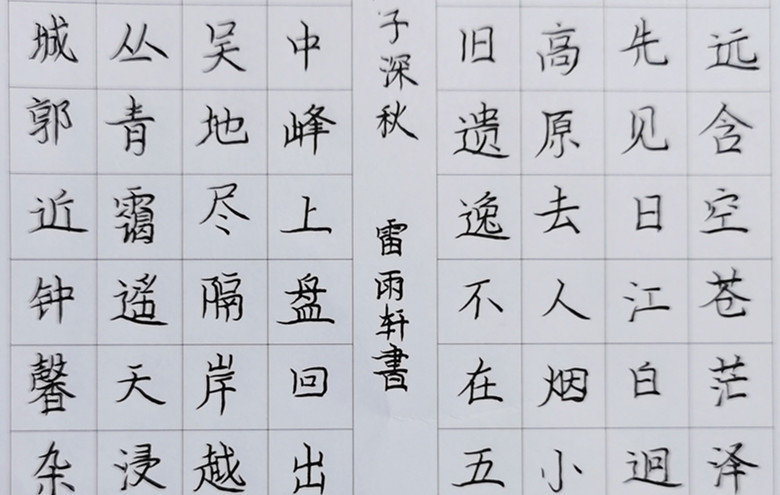 远含空苍茫泽
先见日江白迥
高原去人烟小
旧遗逸不在五
子深秋 雷雨轩書
中峰上盘回出
吴地尽隔岸越
丛青霭遥天浸
城郭近钟馨杂